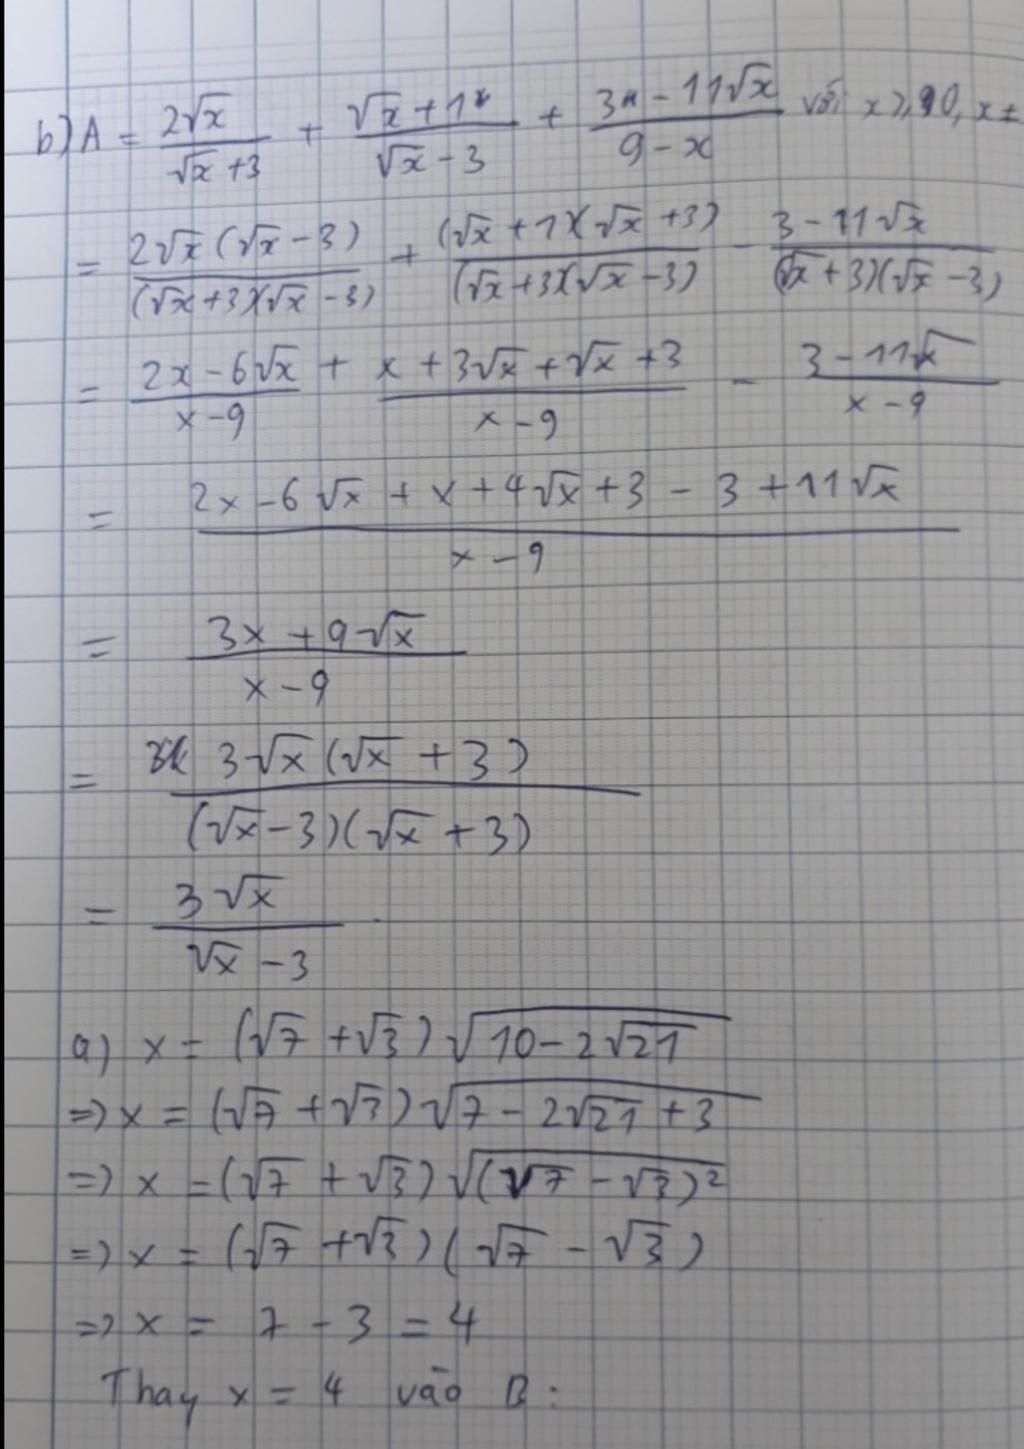 b) A = 2√x / (√x + 3) + (√x + 1) / (√x - 3) + (3 - 11√x) / (9 - x) với x ≥ 0, x ≠
= 2√x(√x - 3) / (√x + 3)(√x - 3) + (√x + 1)(√x + 3) / (√x + 3)(√x - 3) - (3 - 11√x) / (√x + 3)(√x - 3)
= (2x - 6√x) / (x - 9) + (x + 3√x + √x + 3) / (x - 9) - (3 - 11√x) / (x - 9)
= (2x - 6√x + x + 4√x + 3 - 3 + 11√x) / (x - 9)
= (3x + 9√x) / (x - 9)
= 3√x(√x + 3) / (√x - 3)(√x + 3)
= 3√x / (√x - 3).
a) x = (√7 + √3)√(10 - 2√21)
=> x = (√7 + √3)√(7 - 2√21 + 3)
=> x = (√7 + √3)√((√7 - √3)²)
=> x = (√7 + √3)(√7 - √3)
=> x = 7 - 3 = 4
Thay x = 4 vào B: